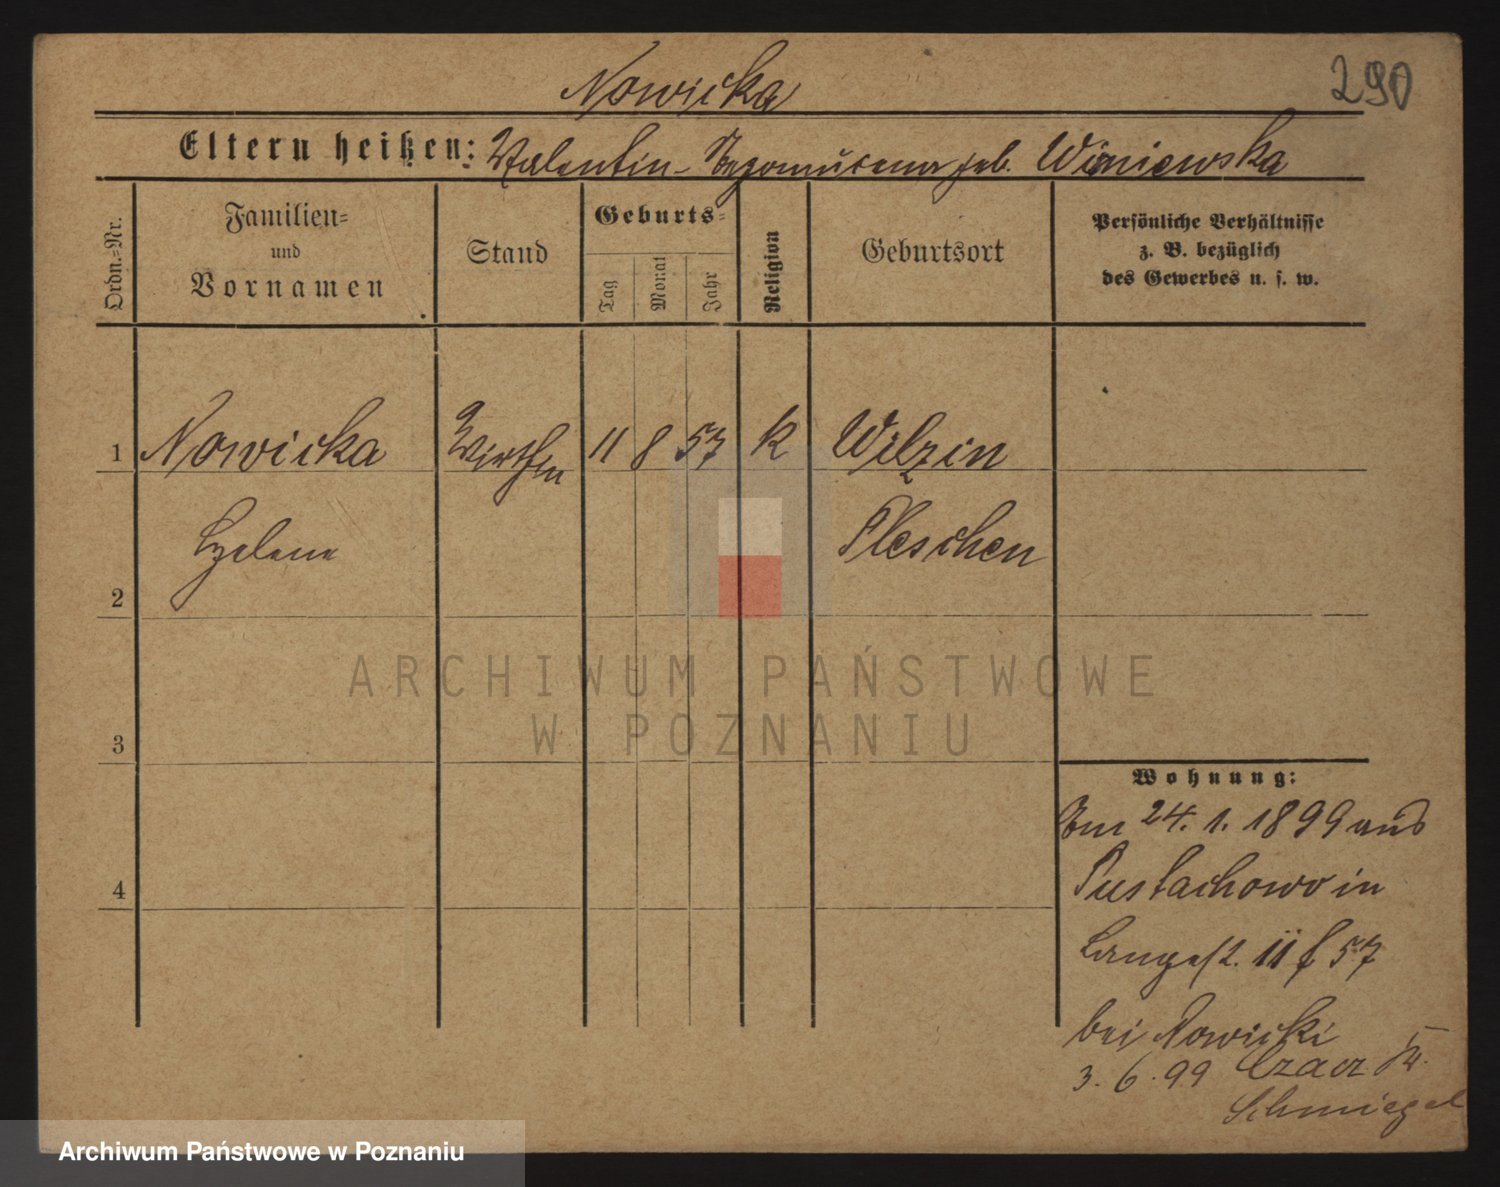 Nowicka
290
Eltern heißen: Valentin - Nepomucena geb. Winiewska
Ordn.=Nr.
Familien=
und
Vornamen
Stand
Geburts=
Tag
Monat
Jahr
Religion
Geburtsort
Persönliche Verhältnisse
z. B. bezüglich
des Gewerbes u. s. w.
1 Nowicka Wirthin 11 8 57 k Wilzin
Pleschen
2
3
4
ARCHIWUM PAŃSTWOWE
W POZNANIU
Wohnung:
Am 24. 1. 1899 aus
Pustachowo in
Langest. 11 f 57
bei Nowicki
3. 6. 99 Czacz
Schmiegel
Archiwum Państwowe w Poznaniu